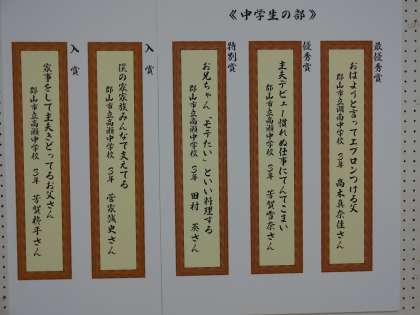 《中学生の部》
最優秀賞
おはようと言ってエプロンつける父
郡山市立湖南中学校 3年 高木真奈佳さん
優秀賞
主夫デビュー慣れぬ仕事にてんてこまい
郡山市立高瀬中学校 3年 芳賀雪奈さん
特別賞
お兄ちゃん「モテたい」といい料理する
郡山市立高瀬中学校 3年 田村 英さん
入賞
僕の家家族みんなで支えてる
郡山市立高瀬中学校 3年 菅家誠史さん
入賞
家事をして主夫きどってるお父さん
郡山市立高瀬中学校 3年 芳賀 平さん